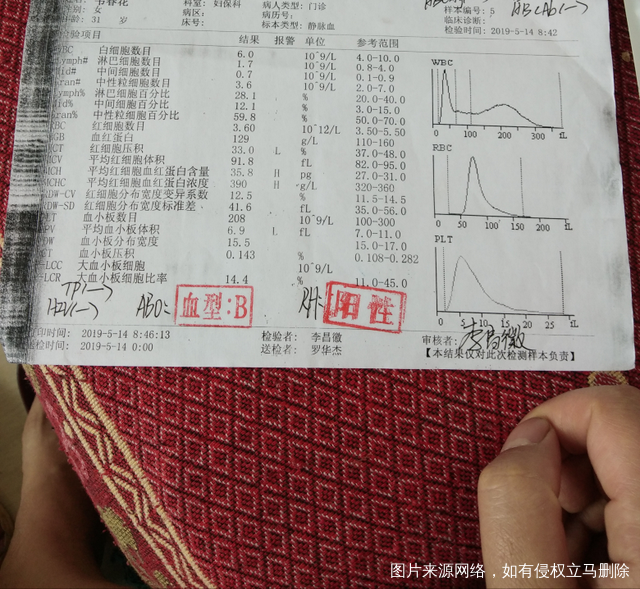 31 岁
科室: 妇保科
病区:
床号:
病人类型: 门诊
病历号:
标本类型: 静脉血
样本编号: 5
临床诊断:
检验时间: 2019-5-14 8:42
检验项目 结果 报警 单位 参考范围
白细胞数目 6.0 10^9/L 4.0-10.0
Lymph# 淋巴细胞数目 1.7 10^9/L 0.8-4.0
Mid# 中间细胞数目 0.7 10^9/L 0.1-0.9
Gran# 中性粒细胞数目 3.6 10^9/L 2.0-7.0
Lymph% 淋巴细胞百分比 28.1 % 20.0-40.0
Mid% 中间细胞百分比 12.1 % 3.0-15.0
Gran% 中性粒细胞百分比 59.8 % 50.0-70.0
RBC 红细胞数目 3.60 10^12/L 3.50-5.50
HGB 血红蛋白 129 g/L 110-160
HCT 红细胞压积 33.0 L % 37.0-48.0
MCV 平均红细胞体积 91.8 fL 82.0-95.0
MCH 平均红细胞血红蛋白含量 35.8 H pg 27.0-31.0
MCHC 平均红细胞血红蛋白浓度 390 H g/L 320-360
RDW-CV 红细胞分布宽度变异系数 12.5 % 11.5-14.5
RDW-SD 红细胞分布宽度标准差 41.6 fL 35.0-56.0
PLT 血小板数目 208 10^9/L 100-300
MPV 平均血小板体积 6.9 L fL 7.0-11.0
PDW 血小板分布宽度 15.5 15.0-17.0
PCT 血小板压积 0.143 % 0.108-0.282
P-LCC 大血小板细胞 10^9/L
P-LCR 大血小板细胞比率 14.4 % 11.0-45.0
WBC
0 100 200 300 fL
RBC
0 50 100 150 200 fL
PLT
0 5 10 15 20 25 fL
TP(-)
HIV(-)
ABO: 血型:B
RH: 阳性
打印时间: 2019-5-14 8:46:13
送检时间: 2019-5-14 0:00
检验者: 李昌徽
送检: 罗华杰
审核者: 李昌徽
【本结果仅对此次检测样本负责】
图片来源网络，如有侵权立马删除